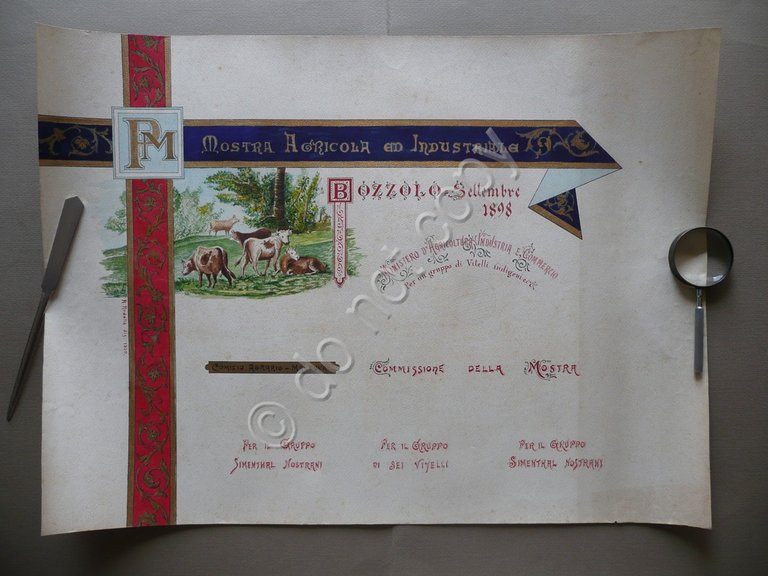 PM
MOSTRA AGRICOLA ED INDUSTRIALE
BOZZOLO Settembre
1898
MINISTERO D'AGRICOLTURA INDUSTRIA E COMMERCIO
Per un gruppo di Vitelli indigeni
COMIZIO AGRARIO
COMMISSIONE DELLA MOSTRA
PER IL GRUPPO
SIMENTHAL NOSTRANI
PER IL GRUPPO
DI SEI VITELLI
PER IL GRUPPO
SIMENTHAL NOSTRANI
© do not copy